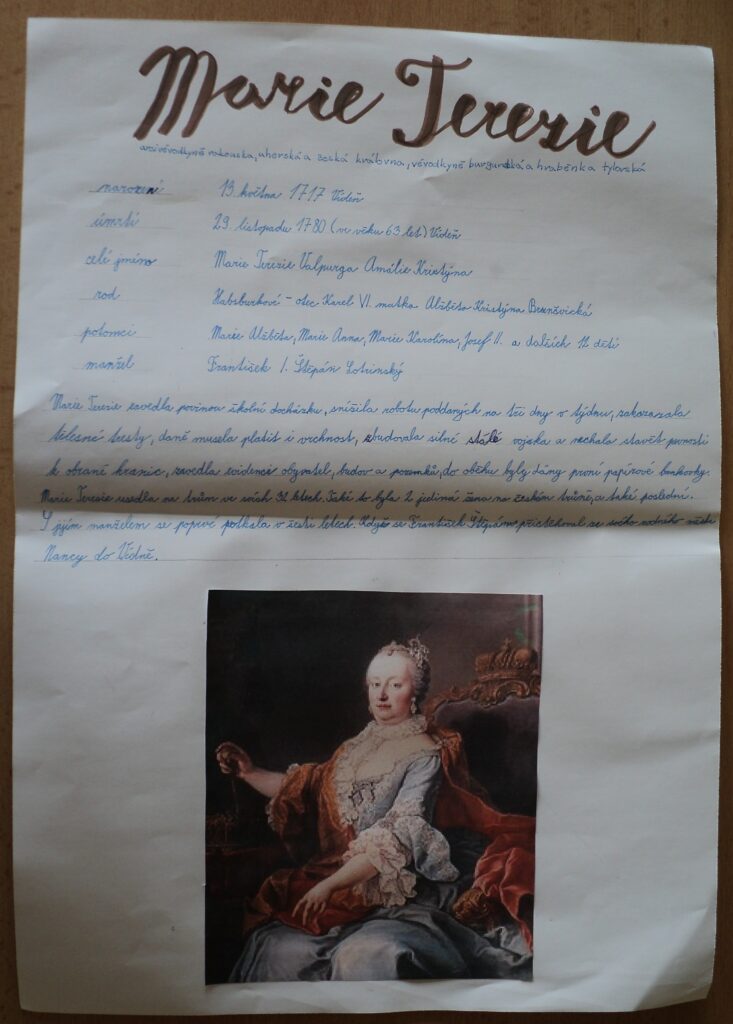 Marie Terezie
arcivévodkyně rakouská, uherská a česká královna, vévodkyně burgundská a hraběnka tylorská
narození 13. května 1717 Vídeň
úmrtí 29. listopadu 1780 (ve věku 63 let) Vídeň
celé jméno Marie Terezie Valpurga Amálie Kristýna
rod Habsburkové - otec Karel VI. matka Alžběta Kristýna Brunšvická
potomci Marie Alžběta, Marie Anna, Marie Karolína, Josef II. a dalších 12 dětí
manžel František I. Štěpán Lotrinský
Marie Terezie zavedla povinou školní docházku, snížila robotu poddaných na tři dny v týdnu, zakazazala
tělesné tresty, daně musela platit i vrchnost, zbudovala silné stálé vojska a nechala stavět pevnosti
k obraně hranic, zavedla evidenci obyvatel, budov a pozemků, do oběhu byly dány první papírové bankovky.
Marie Terezie usedla na trůn ve svích letech. Také to byla 2. jediná žena na českém trůně, a také poslední.
S jejím manželem se poprvé potkala v šesti letech. Když se František Štěpán přistěhoval ze svého rodného města
Nancy do Vídně.